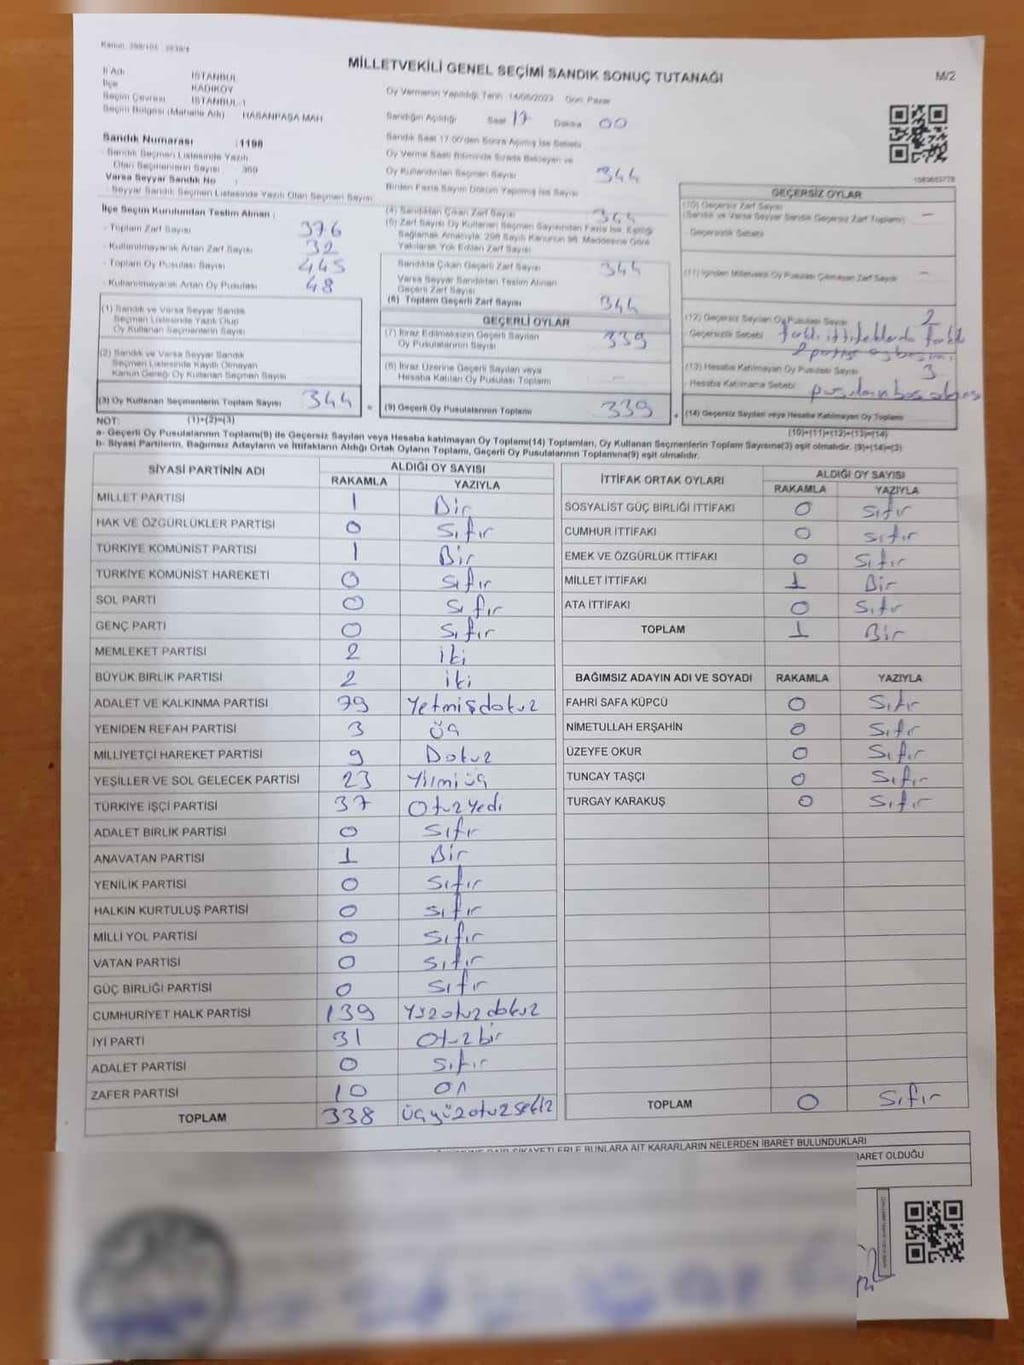 Kanun: 298/105 2839/4
MİLLETVEKİLİ GENEL SEÇİMİ SANDIK SONUÇ TUTANAĞI
M/2
İl Adı İSTANBUL
İlçe KADIKÖY
Seçim Çevresi İSTANBUL-1
Seçim Bölgesi (Mahalle Adı) HASANPAŞA MAH
Sandık Numarası :1198
Sandık Seçmen Listesinde Yazılı
Olan Seçmenlerin Sayısı : 369
Varsa Seyyar Sandık No
Seyyar Sandık Seçmen Listesinde Yazılı Olan Seçmen Sayısı
Oy Vermenin Yapıldığı Tarih 14/05/2023 Gün: Pazar
Sandığın Açıldığı Saat 17 Dakika 00
Sandık Saat 17.00'den Sonra Açılmış İse Sebebi
Oy Verme Saati Bitiminde Sırada Bekleyen ve
Oy Kullandırılan Seçmen Sayısı 344
Birden Fazla Sayım Döküm Yapılmış İse Sayısı
İlçe Seçim Kurulundan Teslim Alınan :
- Toplam Zarf Sayısı 376
- Kullanılmayarak Artan Zarf Sayısı 32
- Toplam Oy Pusulası Sayısı 445
- Kullanılmayarak Artan Oy Pusulası 48
(1) Sandık ve Varsa Seyyar Sandık
Seçmen Listesinde Yazılı Olup
Oy Kullanan Seçmenlerin Sayısı
(2) Sandık ve Varsa Seyyar Sandık
Seçmen Listesinde Kayıtlı Olmayan
Kanun Gereği Oy Kullanan Seçmen Sayısı
(3) Oy Kullanan Seçmenlerin Toplam Sayısı 344
(1)+(2)=(3)
(4) Sandıktan Çıkan Zarf Sayısı 344
(5) Zarf Sayısı Oy Kullanan Seçmen Sayısından Fazla İse, Eşitliği
Sağlamak Amacıyla; 298 Sayılı Kanunun 98. Maddesine Göre
Yakılarak Yok Edilen Zarf Sayısı
Sandıkta Çıkan Geçerli Zarf Sayısı 344
Varsa Seyyar Sandıktan Teslim Alınan
Geçerli Zarf Sayısı
(6) Toplam Geçerli Zarf Sayısı 344
GEÇERLİ OYLAR
(7) İtiraz Edilmeksizin Geçerli Sayılan
Oy Pusulalarının Sayısı 339
(8) İtiraz Üzerine Geçerli Sayılan veya
Hesaba Katılan Oy Pusulası Toplamı -
= (9) Geçerli Oy Pusulalarının Toplamı 339
1583653778
GEÇERSİZ OYLAR
(10) Geçersiz Zarf Sayısı
(Sandık ve Varsa Seyyar Sandık Geçersiz Zarf Toplamı) -
- Geçersizlik Sebebi
(11) İçinden Milletvekili Oy Pusulası Çıkmayan Zarf Sayısı -
(12) Geçersiz Sayılan Oy Pusulası Sayısı 2
- Geçersizlik Sebebi farklı ittifaklarda farklı
2 partiye oy basımı
(13) Hesaba Katılmayan Oy Pusulası Sayısı 3
- Hesaba Katılmama Sebebi
+ (14) Geçersiz Sayılan veya Hesaba Katılmayan Oy Toplamı
(10)+(11)+(12)+(13)=(14)
NOT:
a- Geçerli Oy Pusulalarının Toplamı(9) ile Geçersiz Sayılan veya Hesaba katılmayan Oy Toplamı(14) Toplamları, Oy Kullanan Seçmenlerin Toplam Sayısına(3) eşit olmalıdır. (9)+(14)=(3)
b- Siyasi Partilerin, Bağımsız Adayların ve İttifakların Aldığı Ortak Oyların Toplamı, Geçerli Oy Pusulalarının Toplamına(9) eşit olmalıdır.
SİYASİ PARTİNİN ADI ALDIĞI OY SAYISI
RAKAMLA YAZIYLA
MİLLET PARTİSİ 1 Bir
HAK VE ÖZGÜRLÜKLER PARTİSİ 0 Sıfır
TÜRKİYE KOMÜNİST PARTİSİ 1 Bir
TÜRKİYE KOMÜNİST HAREKETİ 0 Sıfır
SOL PARTİ 0 Sıfır
GENÇ PARTİ 0 Sıfır
MEMLEKET PARTİSİ 2 iki
BÜYÜK BİRLİK PARTİSİ 2 iki
ADALET VE KALKINMA PARTİSİ 79 Yetmişdokuz
YENİDEN REFAH PARTİSİ 3 üç
MİLLİYETÇİ HAREKET PARTİSİ 9 Dokuz
YEŞİLLER VE SOL GELECEK PARTİSİ 23 Yirmiüç
TÜRKİYE İŞÇİ PARTİSİ 37 Otuzyedi
ADALET BİRLİK PARTİSİ 0 Sıfır
ANAVATAN PARTİSİ 1 Bir
YENİLİK PARTİSİ 0 Sıfır
HALKIN KURTULUŞ PARTİSİ 0 Sıfır
MİLLİ YOL PARTİSİ 0 Sıfır
VATAN PARTİSİ 0 Sıfır
GÜÇ BİRLİĞİ PARTİSİ 0 Sıfır
CUMHURİYET HALK PARTİSİ 139 Yüzotuzdokuz
İYİ PARTİ 31 Otuzbir
ADALET PARTİSİ 0 Sıfır
ZAFER PARTİSİ 10 on
TOPLAM 338 üçyüzotuzsekiz
İTTİFAK ORTAK OYLARI ALDIĞI OY SAYISI
RAKAMLA YAZIYLA
SOSYALİST GÜÇ BİRLİĞİ İTTİFAKI 0 Sıfır
CUMHUR İTTİFAKI 0 Sıfır
EMEK VE ÖZGÜRLÜK İTTİFAKI 0 Sıfır
MİLLET İTTİFAKI 1 Bir
ATA İTTİFAKI 0 Sıfır
TOPLAM 1 Bir
BAĞIMSIZ ADAYIN ADI VE SOYADI RAKAMLA YAZIYLA
FAHRİ SAFA KÜPCÜ 0 Sıfır
NİMETULLAH ERŞAHİN 0 Sıfır
ÜZEYFE OKUR 0 Sıfır
TUNCAY TAŞÇI 0 Sıfır
TURGAY KARAKUŞ 0 Sıfır
TOPLAM 0 Sıfır
ŞİKAYETLERLE BUNLARA AİT KARARLARIN NELERDEN İBARET BULUNDUKLARI
BARET OLDUĞU